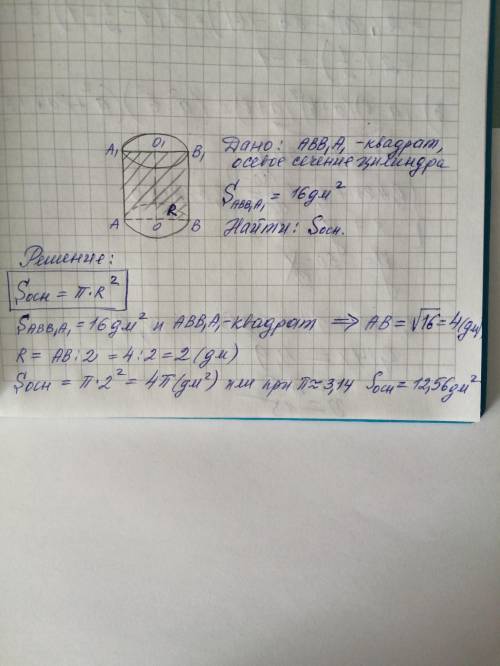 A₁ O₁ B₁
A O R B
Дано: ABB₁A₁ - квадрат,
осевое сечение цилиндра
S_ABB₁A₁ = 16 дм²
Найти: Sосн.
Решение:
Sосн = π·R²
S_ABB₁A₁ = 16 дм² и ABB₁A₁ - квадрат ⇒ AB = √16 = 4 (дм)
R = AB : 2 = 4 : 2 = 2 (дм)
Sосн = π·2² = 4π (дм²) или при π≈3,14 Sосн = 12,56 дм²